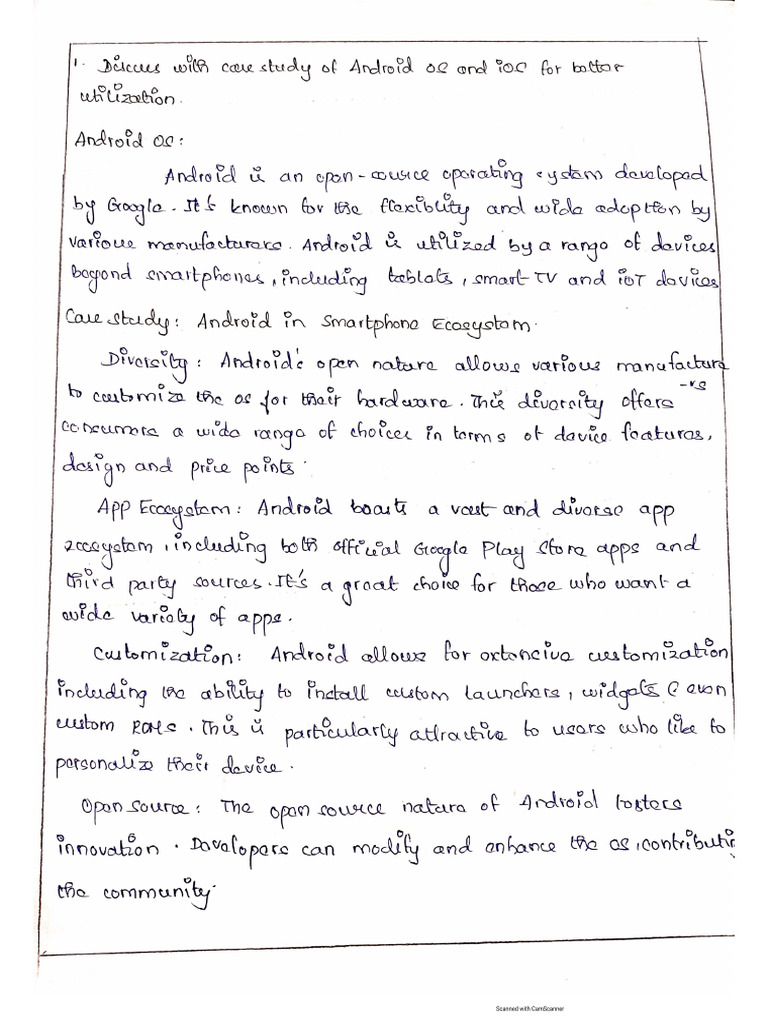 1. Discuss with case study of Android OS and iOS for better
utilization.
Android OS:
Android is an open-source operating system developed
by Google. It's known for the flexiblity and wide adoption by
various manufacturers. Android is utilized by a range of devices
beyond smartphones, including tablets, smart TV and IoT devices
Case study: Android in Smartphone Ecosystem.
Diversity: Android's open nature allows various manufacture
-rs
to customize the os for their hardware. This diversity offers
consumers a wide range of choices in terms of device features,
design and price points.
App Ecosystem: Android boasts a vast and diverse app
ecosystem, including both official Google Play Store apps and
third party sources. It's a great choice for those who want a
wide variety of apps.
Customization: Android allows for extensive customization
including the ability to install custom launchers, widgets & even
custom ROMs. This is particularly attractive to users who like to
personalize their device.
Open source: The open source nature of Android fosters
innovation. Developers can modify and enhance the os, contributin
the community.
Scanned with CamScanner